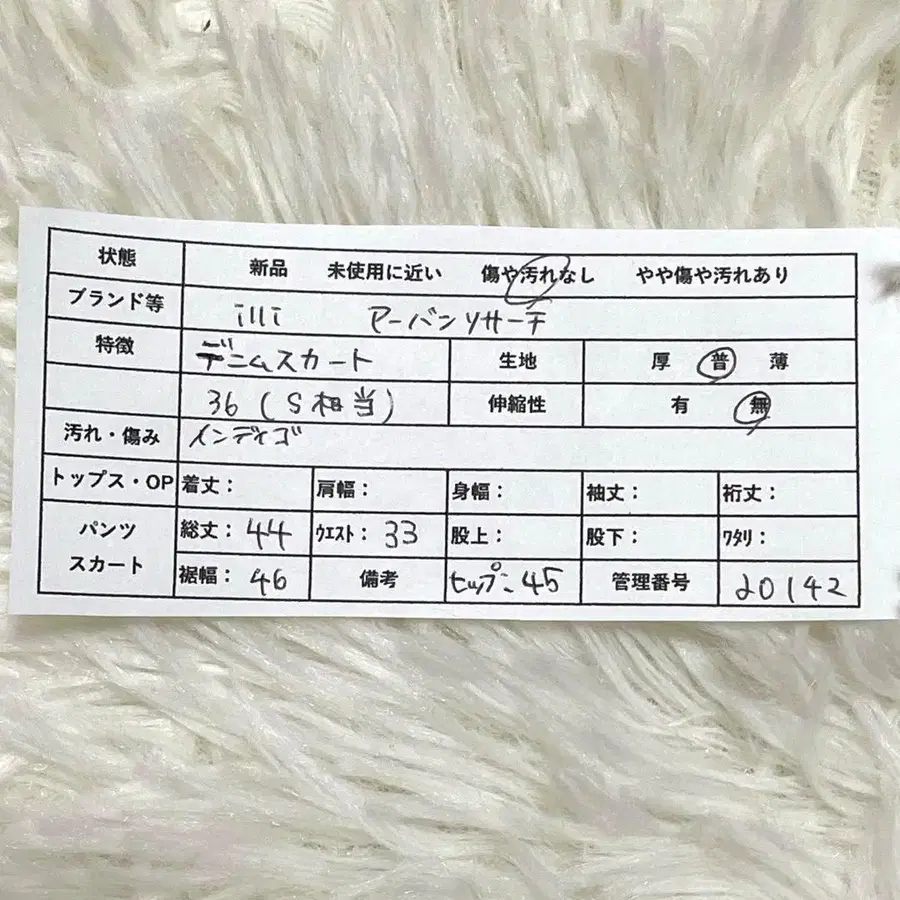 状態 新品 未使用に近い 傷や汚れなし やや傷や汚れあり
ブランド等 illi アーバンリサーチ
特徴 デニムスカート 生地 厚 普 薄
36(S相当) 伸縮性 有 無
汚れ・傷み インディゴ
トップス・OP 着丈: 肩幅: 身幅: 袖丈: 裄丈:
パンツ 総丈: 44 ウエスト: 33 股上: 股下: ワタリ:
スカート 裾幅: 46 備考 ヒップ: 45 管理番号 20142